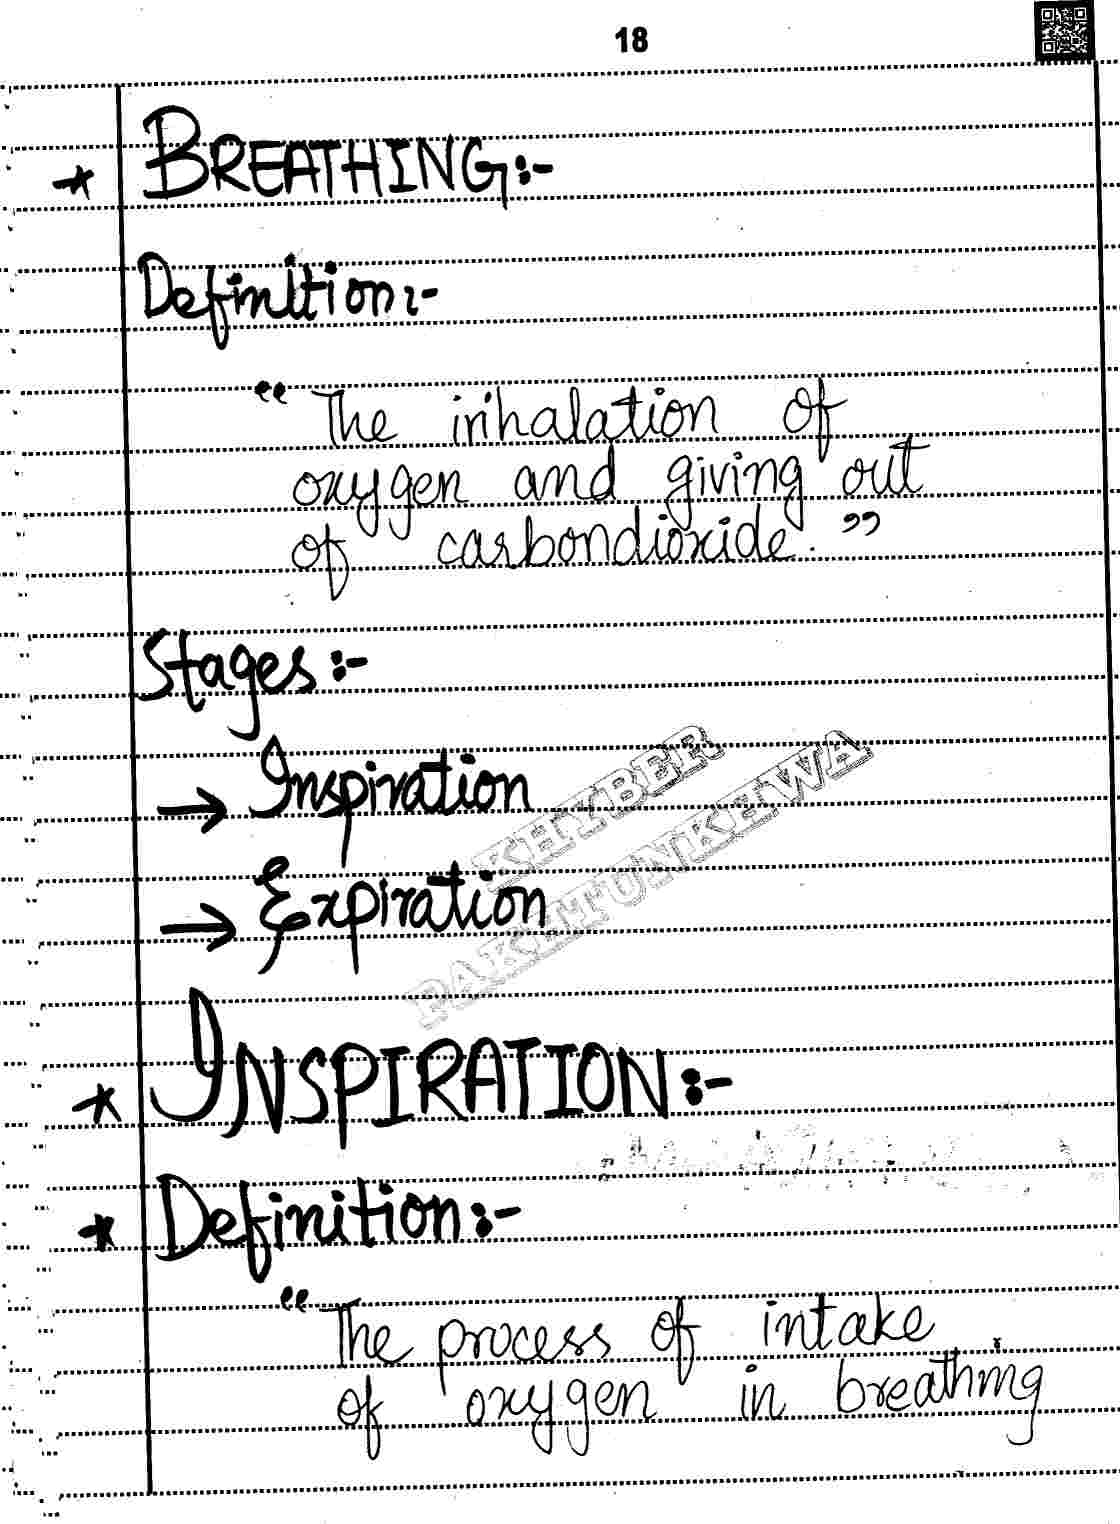 18
* BREATHING:-
Definition:-
"The inhalation of
oxygen and giving out
of carbondioxide."
Stages:-
→ Inspiration
→ Expiration
KHYBER
PAKHTUNKHWA
* INSPIRATION:-
* Definition:-
"The process of intake
of oxygen in breathing